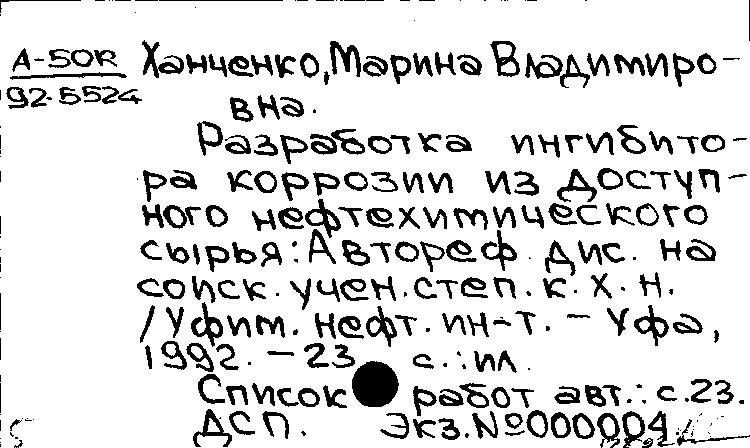 А-50к Ханченко, Марина Владимиро-
92-5524 вна.
Разработка ингибито-
ра коррозии из доступ-
ного нефтехимического
сырья: Автореф. дис. на
соиск. учен. степ. к. х. н.
/Уфим. нефт. ин-т. - Уфа,
1992. - 23 с.: ил.
Список работ авт.: с. 23.
ДСП. Экз. №000004